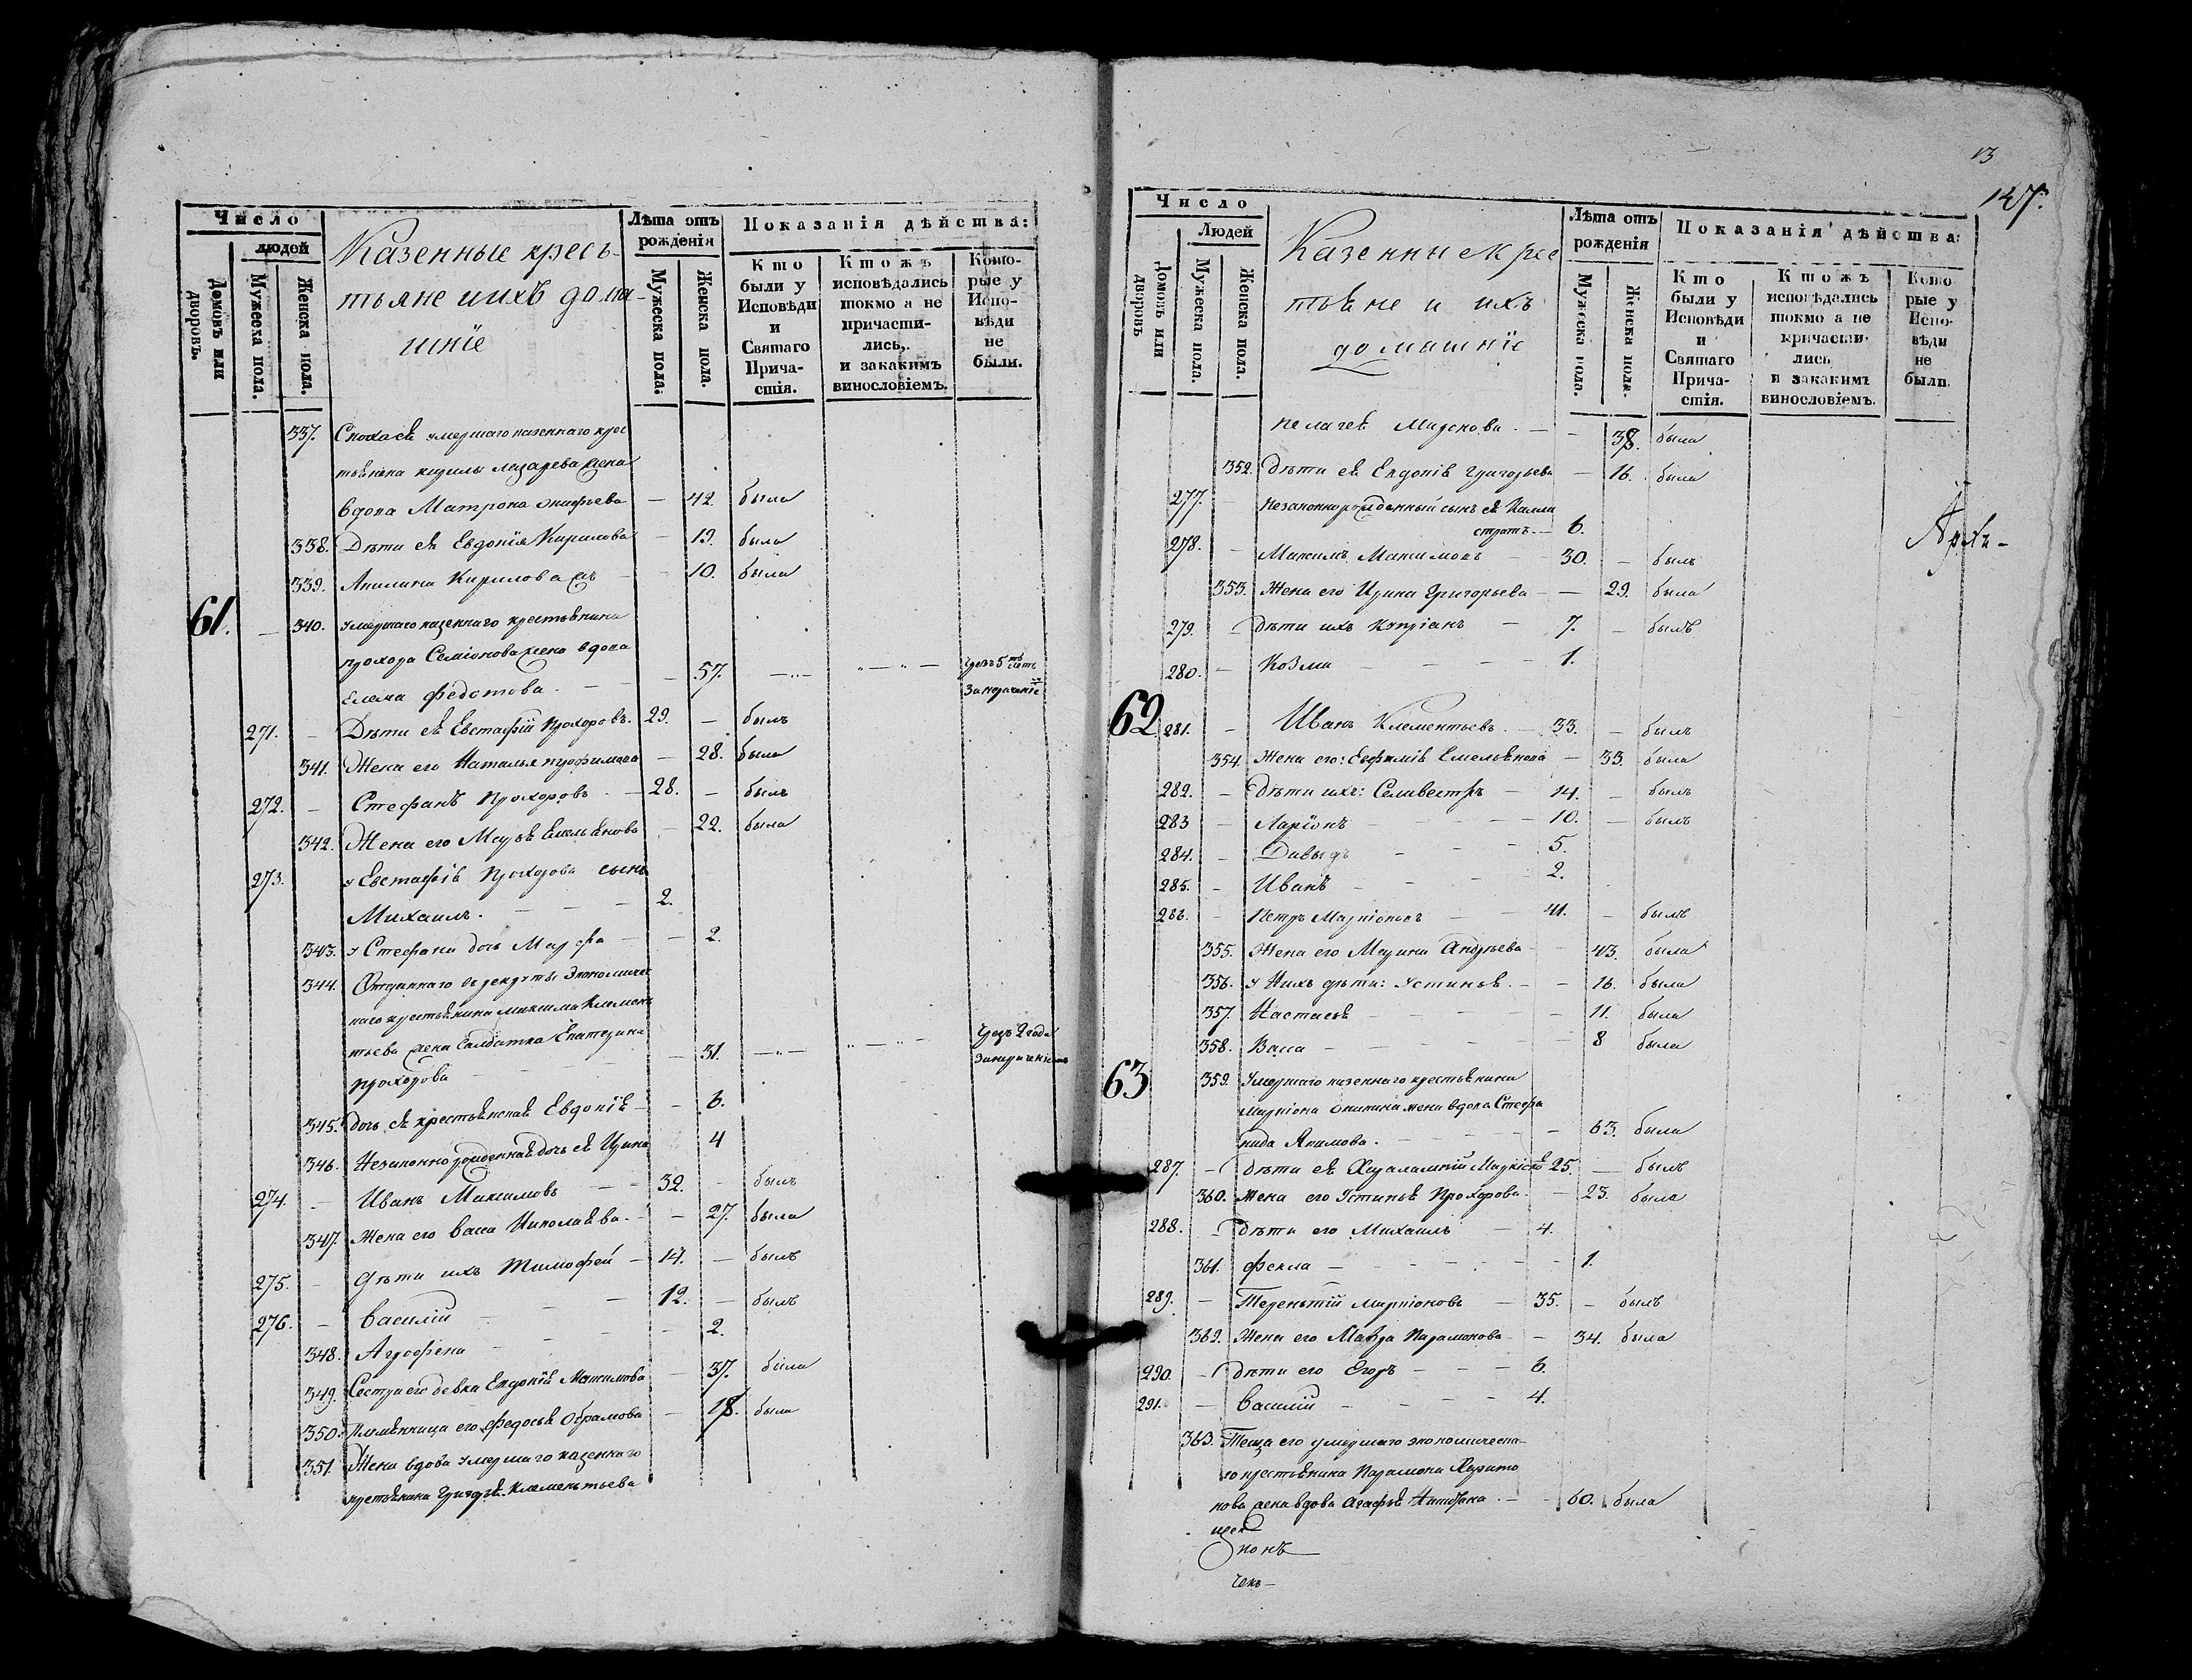 Число
людей
Домовъ или дворовъ.
Мужеска пола.
Женска пола.
Казенные кресь-
тьяне и ихъ дома-
шніе
Лѣта отъ
рожденія
Мужеска пола.
Женска пола.
Показанія дѣйства:
Кто были у Исповѣди и Святаго Прича-стія.
Ктожъ исповѣдались токмо а не причасти-лись, и закакимъ винословіемъ.
Кото-рые у Испо-вѣди не были.
337. Сноха ея умершаго казеннаго крес
тьянина Кирилы Лазарева жена
вдова Матрона — 42. была
338. Дѣти ея Евдокія Кирилова — 19. была
339. Акилина Кирилова — 10. была
61. — 340. умершаго казеннаго крестьянина
прохора Семіонова жена вдова
Елена Федотова — 57. —„— „—„— чрезъ 5 лѣтъ
271. — Дѣти ея Евстафій Прохоровъ. 29. — былъ
341. Жена его Наталья — 28. была
272. — Стефанъ Прохоровъ — 28. — былъ
342. Жена его Марья Емельянова — 22. была
273. у Евстафія Прохорова сынъ
Михаилъ. — 2.
343. у Стефана дочь Марфа — 2.
344. Отданнаго въ рекруты Экономичес
каго крестьянина Максима Клемен
тьева жена Салдатка Екатерина — 31. —„— „—„— чрезъ 2 года
прохорова
345. дочь ея крестьянская Евдокія — 6.
346. Незаконнорожденная дочь ея Ирина 4
274. — Иванъ Максимовъ — 32. — былъ
347. Жена его васса Николаева. — 27. была
275. — дѣти ихъ Тимофей — 14. — былъ
276. — василій — 12. — былъ
348. Агрофена — 2.
349. Сестра его девка Евдокія Максимова — 37. была
350. Племянница его федосья Обрамова — 18. была
351. Жена вдова умершаго казеннаго
крестьянина Григорья Клементьева
13
147.
Число
Людей
Домовъ или дворовъ
Мужеска пола.
Женска пола.
Казенные крес
тьяне и ихъ
домашніе
Лѣта отъ
рожденія
Мужеска пола.
Женска пола.
Показанія дѣйства:
Кто были у Исповѣди и Святаго Прича-стія.
Ктожъ исповѣдались токмо а не причасти-лись и закакимъ винословіемъ.
Кото-рые у Испо-вѣди не были.
пелагея Маркова. — 38. была
352. Дѣти ея Евдокія Григорьева — 16. была
277. — Незаконнорожденный сынъ ея Кали
стратъ — 6.
278. — Максимъ Максимовъ 30. — былъ
353. Жена его Ирина Григорьева — 29. была
279. — Дѣти ихъ Купріанъ — 7. — былъ
280. — Козма — 1.
62 281. — Иванъ Клементьевъ. — 33. — былъ
354. Жена его: Евфимія Емельянова — 33. была
282. — Дѣти ихъ: Селивестръ — 14. — былъ
283 — Ларіонъ — 10. — былъ
284. — Давыдъ — 5.
285. — Иванъ — 2.
286. — Петръ Маркіоновъ — 41. — былъ
355. Жена его Марина Андрѣева — 43. была
356. у Нихъ дѣти: Устинья. — 16. была
357. Настасья — 11. была
358. Васса — 8 была
63 359. Умершаго казеннаго крестьянина
Маркіона жена вдова Стефа
нида Якимова. — 63. была
287. — Дѣти ея Харалампій Маркіоновъ 25. — былъ
360. Жена его Устинья Прохорова. — 23. была
288. — Дѣти его Михаилъ — 4.
361. фекла — 1.
289. — Терентій Маркіоновъ — 35. — былъ
362. Жена его Мавра Парамонова — 34. была
290. — Дѣти его Егоръ — 6.
291. — василій — 4.
363. Теща его умершаго экономическа-
го крестьянина Парамона Харито
нова жена вдова Агафья — 60. была